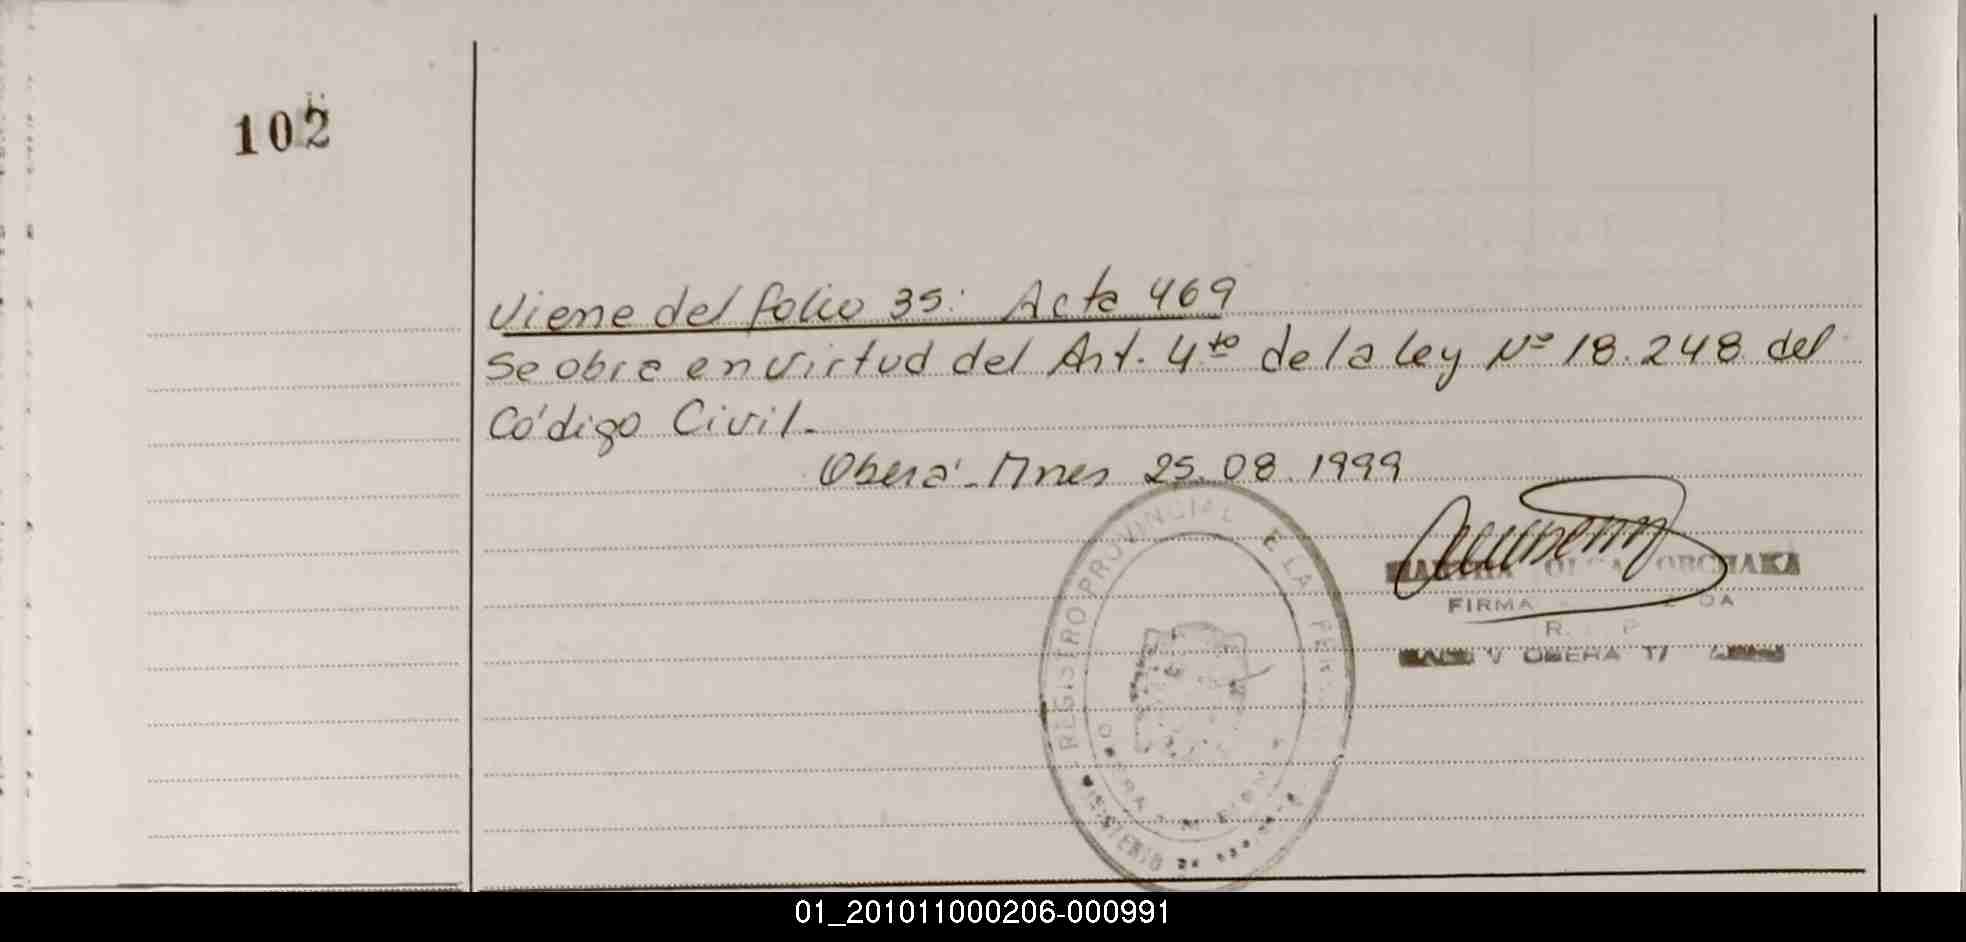 102
Viene del folio 35: Acta 469
Se obra en virtud del Art. 4to de la ley Nº 18.248 del
Código Civil.-
Oberá - Mnes 25.08.1999
REGISTRO PROVINCIAL E LA
MINISTERIO DE
OLGA ORCHAKA
FIRMA
R. P
OBERA
01_201011000206-000991